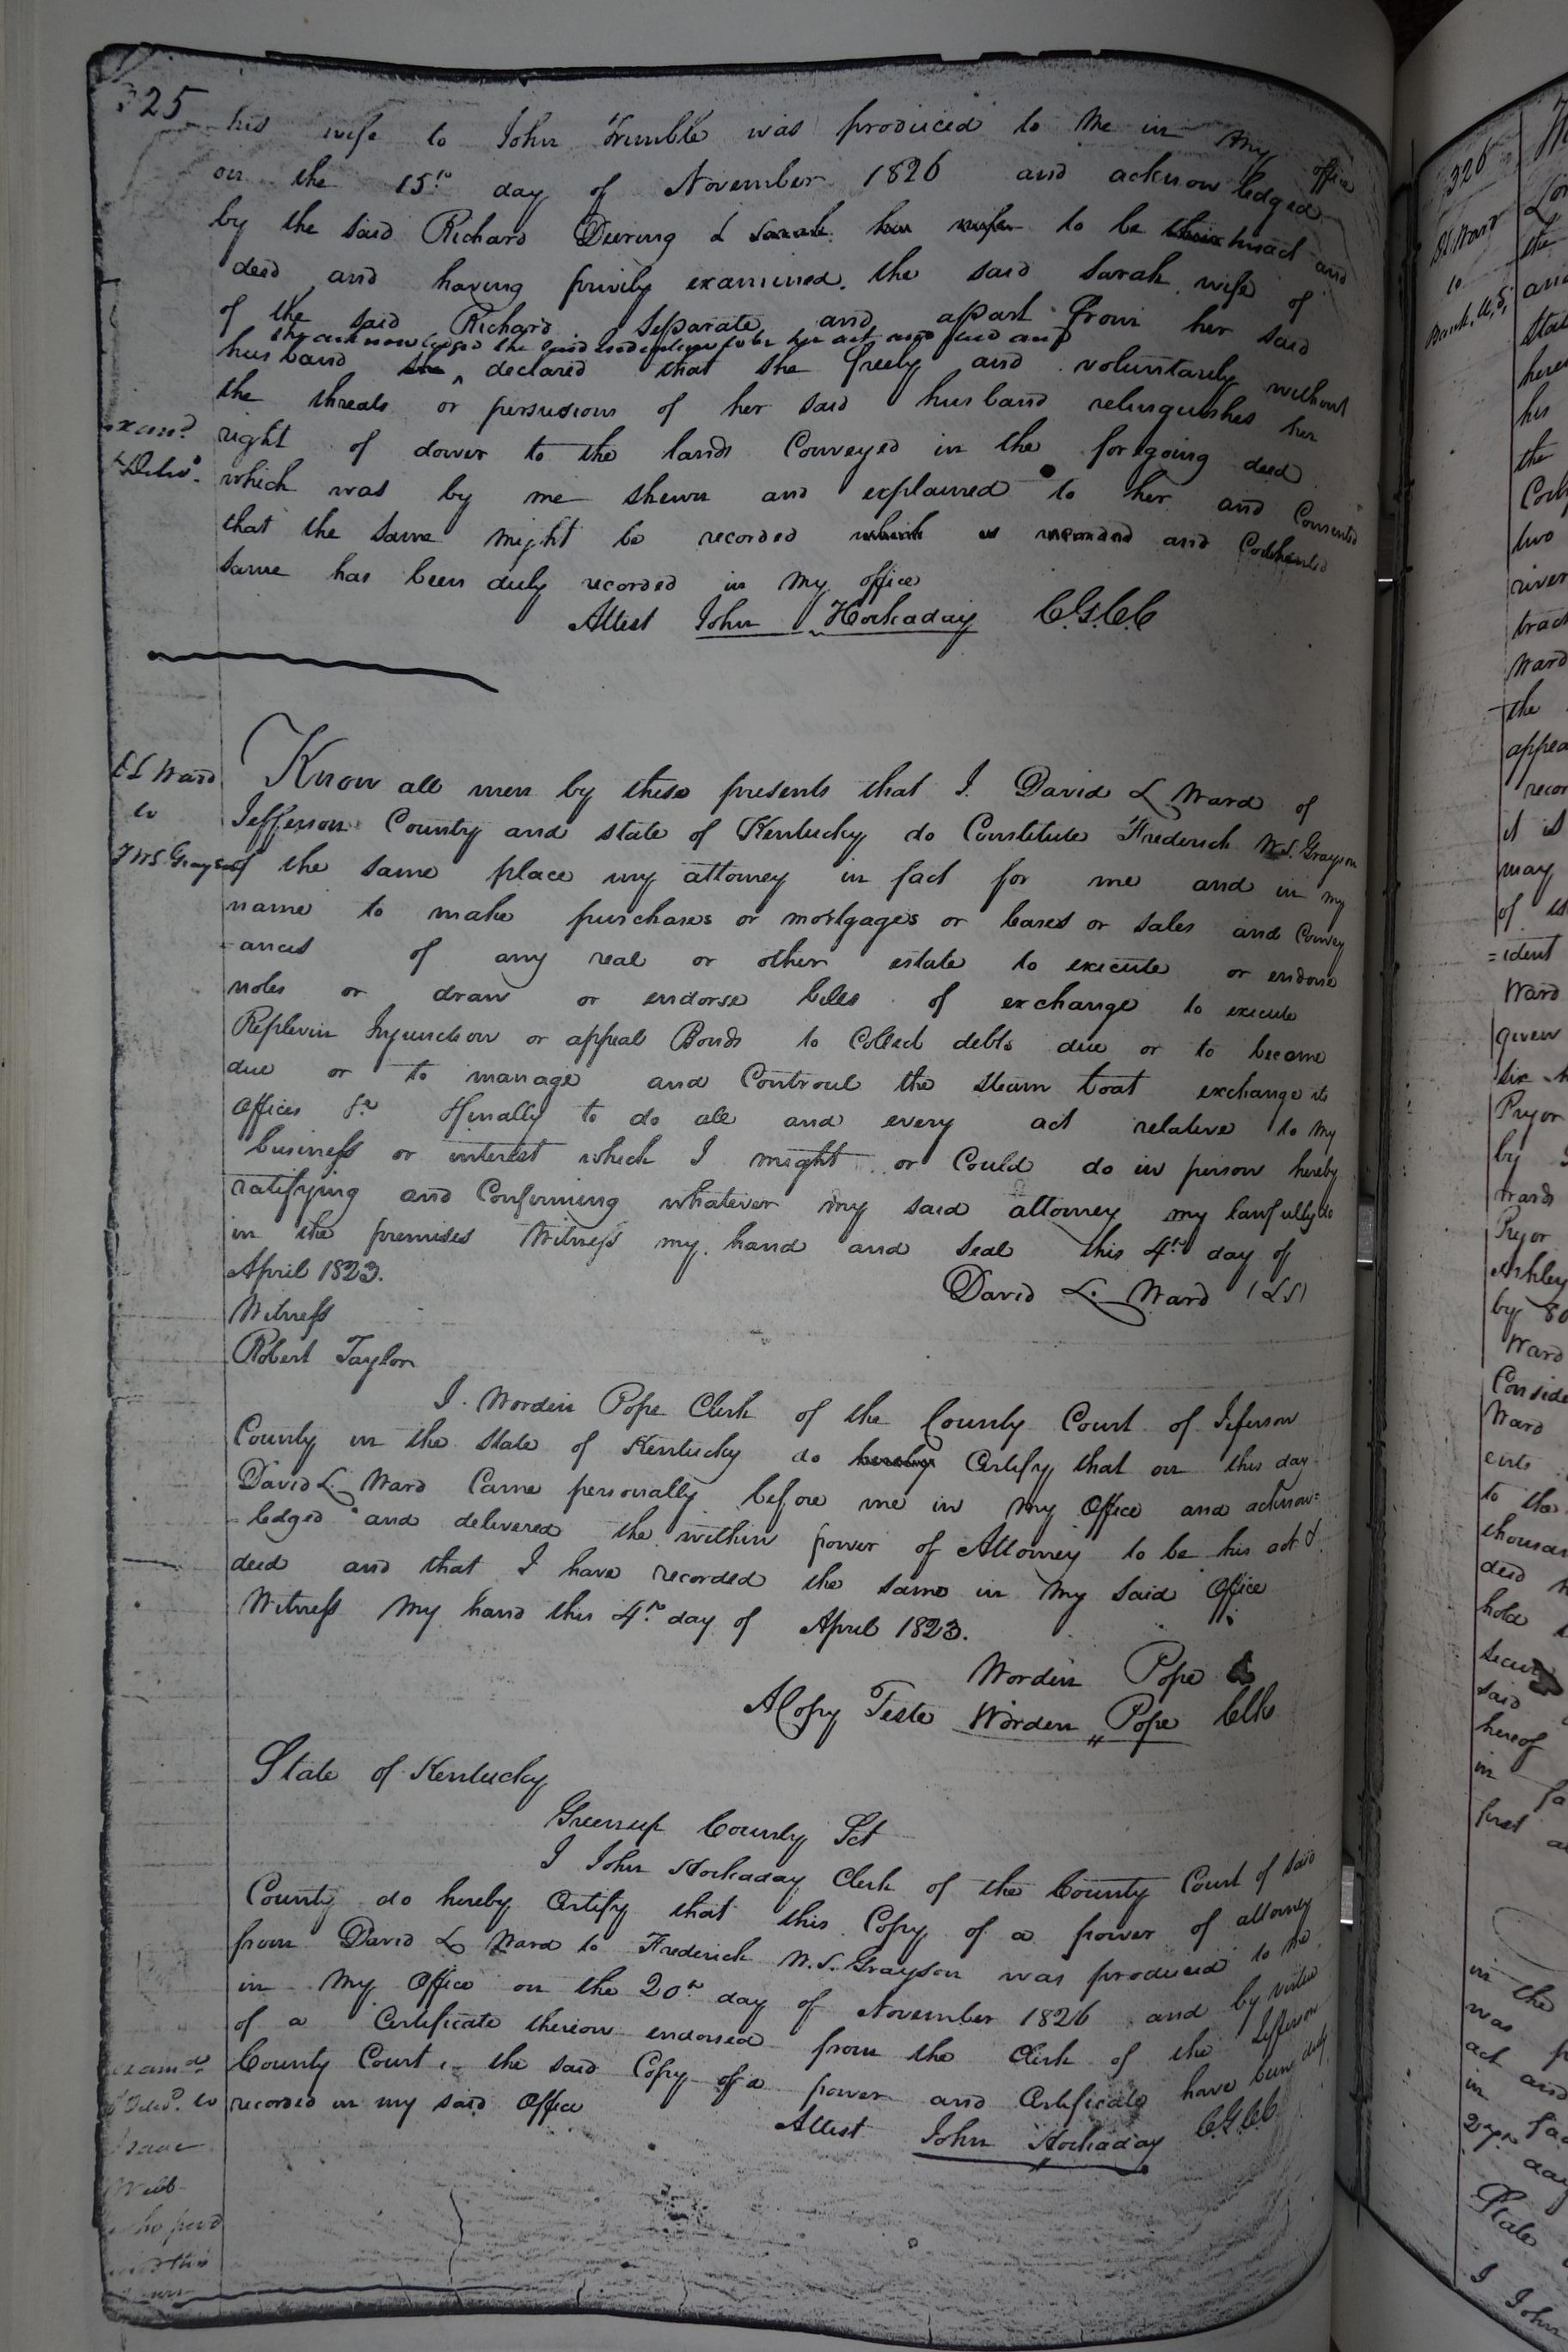 325
his wife to John Trimble was produced to me in my office
on the 15th day of November 1826 and acknowledged
by the said Richard Deering & Sarah his wife to be their hnact and
deed and having privily examined the said Sarah wife of
of the said Richard Separate and apart from her said
she acknowledged the said indenture to be her act and deed and
husband she ^ declared that she freely and voluntarely without
the threats or persusions of her said husband relinquishes her
right of dower to the lands Conveyed in the forgoing deed
which was by me shewn and explained to her and Consented
that the same might be recorded which is recorded and
same has been duly recorded in my office
Attest John Hockaday C.G.C.C
Exam.d
& Deliv.d
D L Ward
to
F W S. Grayson
Know all men by these presents that I David L Ward of
Jefferson County and state of Kentucky do Constitute Frederick W.S. Grayson
of the same place my attorney in fact for me and in my
name to make purchases or mortgages or leases or sales and Convey
-ances of any real or other estate to execute or endorse
notes or draw or endorse bills of exchange to execute
Replevin Injunction or appeal Bonds to Collect debts due or to become
due or to manage and Controul the steam boat exchange its
Offices &c & finally to do all and every act relative to my
business or interest which I might or Could do in person hereby
ratifying and Confirming whatever my said attorney my lawfully do
in the premises Witness my hand and seal this 4th day of
April 1823.
David L. Ward (LS)
Witness
Robert Taylor
I. Worden Pope Clerk of the County Court of Jeferson
County in the state of Kentucky do hereby Certify that on this day
David L. Ward Came personally before me in my Office and acknow=
-ledged and delivered the within power of Attorney to be his act &
deed and that I have recorded the same in my said Office
Witness my hand this 4th day of April 1823.
Worden Pope
A Copy Teste Worden Pope Clk
State of Kentucky
Greenup County Sct
I John Hockaday Clerk of the County Court of said
County do hereby Certify that this Copy of a power of attorney
from David L Ward to Frederick W.S. Grayson was produced to me
in my Office on the 20th day of November 1826 and by virtue
of a Certificate thereon endorsed from the Clerk of the Jefferson
County Court, the said Copy of a power and Certificate have been duly
recorded in my said Office
Attest John Hockaday C.G.C.C.
Exam.d
& Deliv.d to
Isaac
Webb
who paid
326
D L Ward
to
Bank, U, S,
the
and
State
here
his
the
two
river
tract
Ward
the
appea
recor
it is
may
of
=ident
Ward
given
six
Pryor
by
wards
Pryor
Ashley
by 80
Ward
Conside
Ward
ents
to the
thousan
deed
hold
secur
said
hereof
in
first
in the
was
act and
in
27th day
State
I John